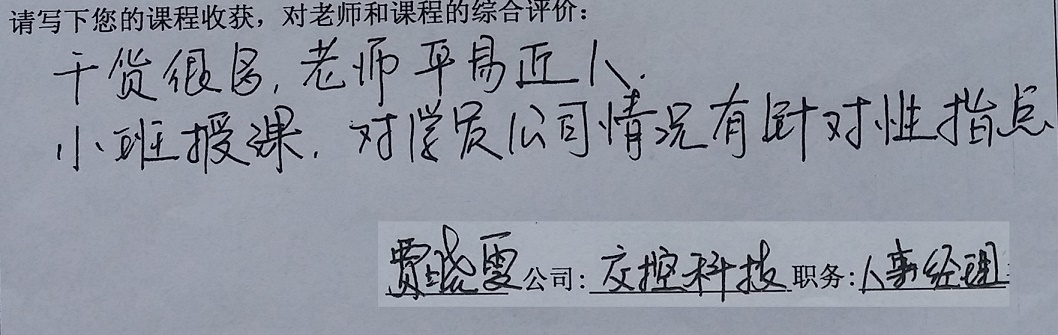 请写下您的课程收获，对老师和课程的综合评价：
干货很多，老师平易近人.
小班授课，对学员公司情况有针对性指点
贾晓雯 公司：交控科技 职务：人事经理